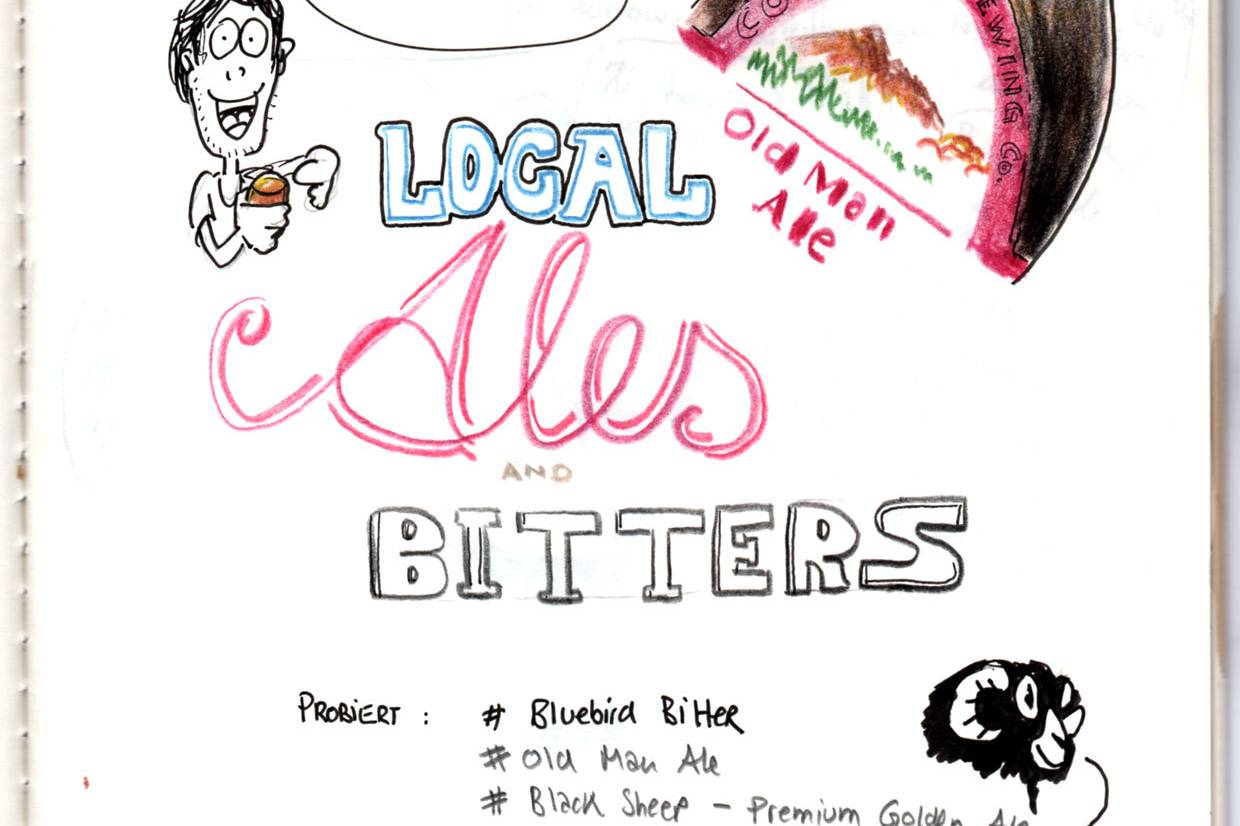 EWING Co.
Old Man
Ale
LOCAL
Ales
AND
BITTERS
PROBIERT : # Bluebird Bitter
# Old Man Ale
# Black Sheep - Premium Golden Ale